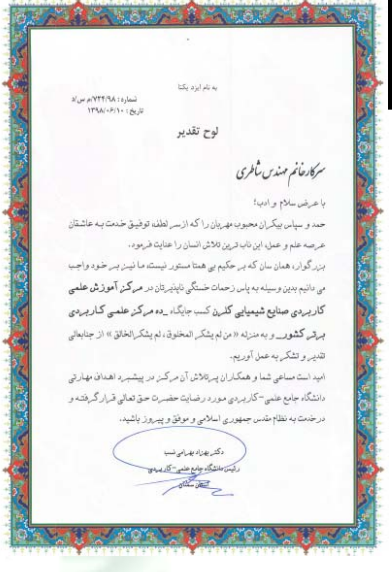 به نام ایزد یکتا
شماره : ۷۴۴/۹۸/م س/د
تاریخ : ۱۳۹۸/۰۶/۱۰
لوح تقدیر
سرکار خانم مهندس شاطری
با عرض سلام و ادب؛
حمد و سپاس بیکران محبوب مهربان را که از سر لطف، توفیق خدمت به عاشقان
عرصه علم و عمل، این ناب ترین تلاش انسان را عنایت فرمود.
بزرگوار، همان سان که بر حکیم بی همتا مستور نیست، ما نیز بر خود واجب
می دانیم بدین وسیله به پاس زحمات خستگی ناپذیرتان در مرکز آموزش علمی
کاربردی صنایع شیمیایی کلرن کسب جایگاه ده مرکز علمی کاربردی
برتر کشور و به منزله « من لم یشکر المخلوق ، لم یشکر الخالق » از جنابعالی
تقدیر و تشکر به عمل آوریم.
امید است مساعی شما و همکاران پرتلاش آن مرکز در پیشبرد اهداف مهارتی
دانشگاه جامع علمی-کاربردی مورد رضایت حضرت حق تعالی قرار گرفته و
در خدمت به نظام مقدس جمهوری اسلامی و موفق و پیروز باشید.
دکتر بهزاد بهرامی نسب
رئیس دانشگاه جامع علمی-کاربردی
استان سمنان